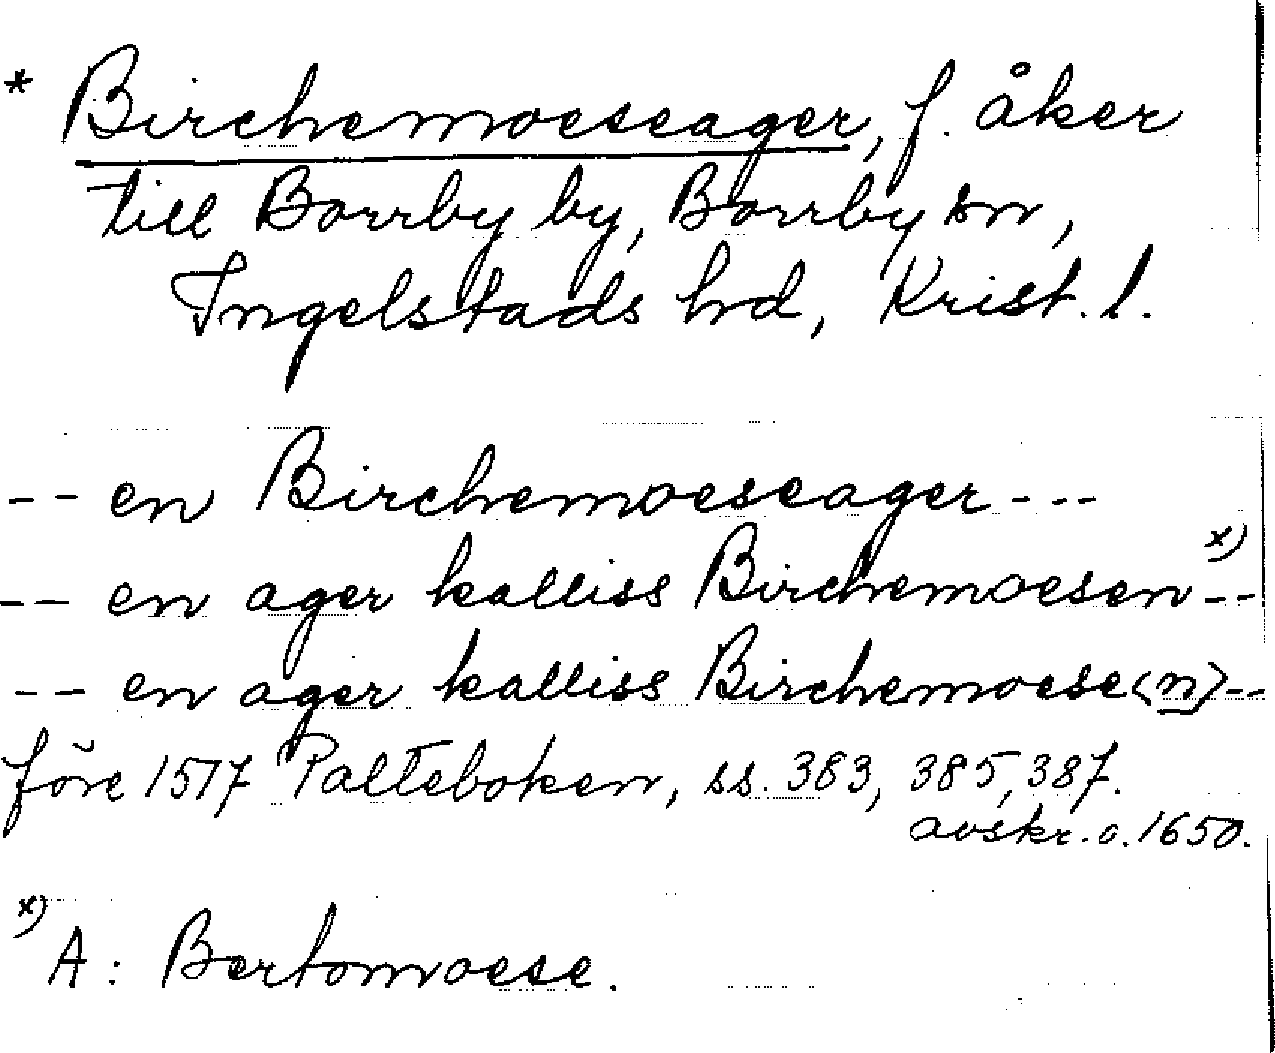 * Birchemoeseager, f. åker
till Borrby by, Borrby sn,
Ingelstads hd, Krist. l.
-- en Birchemoeseager ---
-- en ager kalliss Birchemoesen x) --
-- en ager kalliss Birchemoese<n> --
före 1517 Palteboken, ss. 383, 385, 387.
avskr. o. 1650.
x) A: Bertomoese.